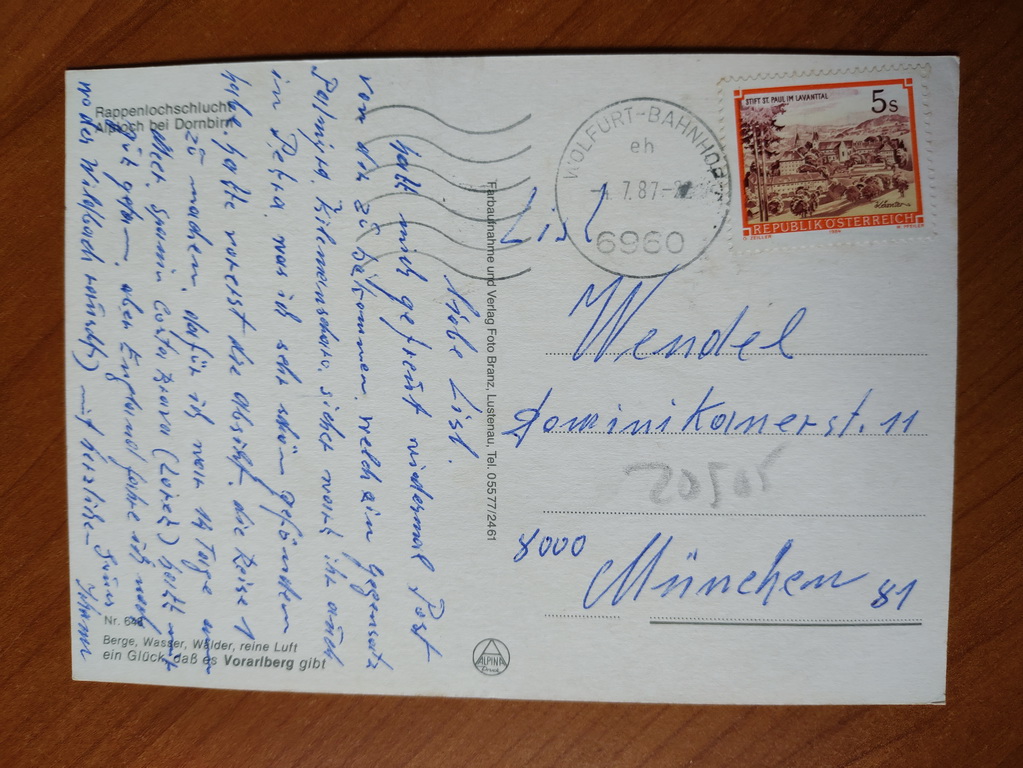 Rappenlochschlucht
Alploch bei Dornbirn
Liebe Lisl.
hatt mich gefreut wiedermal Post
von dir zu bekommen. welch ein gegensatz
Palmyra, Kilimanscharo. sicher warst ihr auch
in Petra. was ich sehr schön gefunden
habe. hatte vorerst die absicht. die Reise
zu machen. dafür ich nur 14 Tage
Meer. Spanien Costa Brava (Loret)
gut getan. aber England fahre ich noch
wo der Wildbach rauscht) mit herzliche
Nr. 64
Berge, Wasser, Wälder, reine Luft
ein Glück, daß es Vorarlberg gibt
Farbaufnahme und Verlag Foto Branz, Lustenau, Tel. 05577/2461
ALPINA
Druck
WOLFURT-BAHNHOF
eh
7.87
6960
STIFT ST. PAUL IM LAVANTTAL
5s
REPUBLIK ÖSTERREICH
1984
Lisl
Wendel
Dominikanerst. 11
20505
8000 München 81